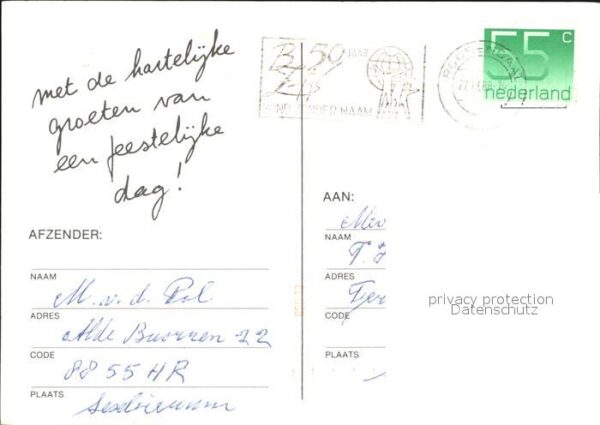 met de hartelijke
groeten van
een feestelijke
dag!
50 JAAR
55 c
nederland
AFZENDER:
NAAM
M. v. d. Pol
ADRES
Alde Buorren 22
CODE
8855 HR
PLAATS
Sexbierum
AAN:
Mev
NAAM
T.
ADRES
CODE
PLAATS
privacy protection
Datenschutz